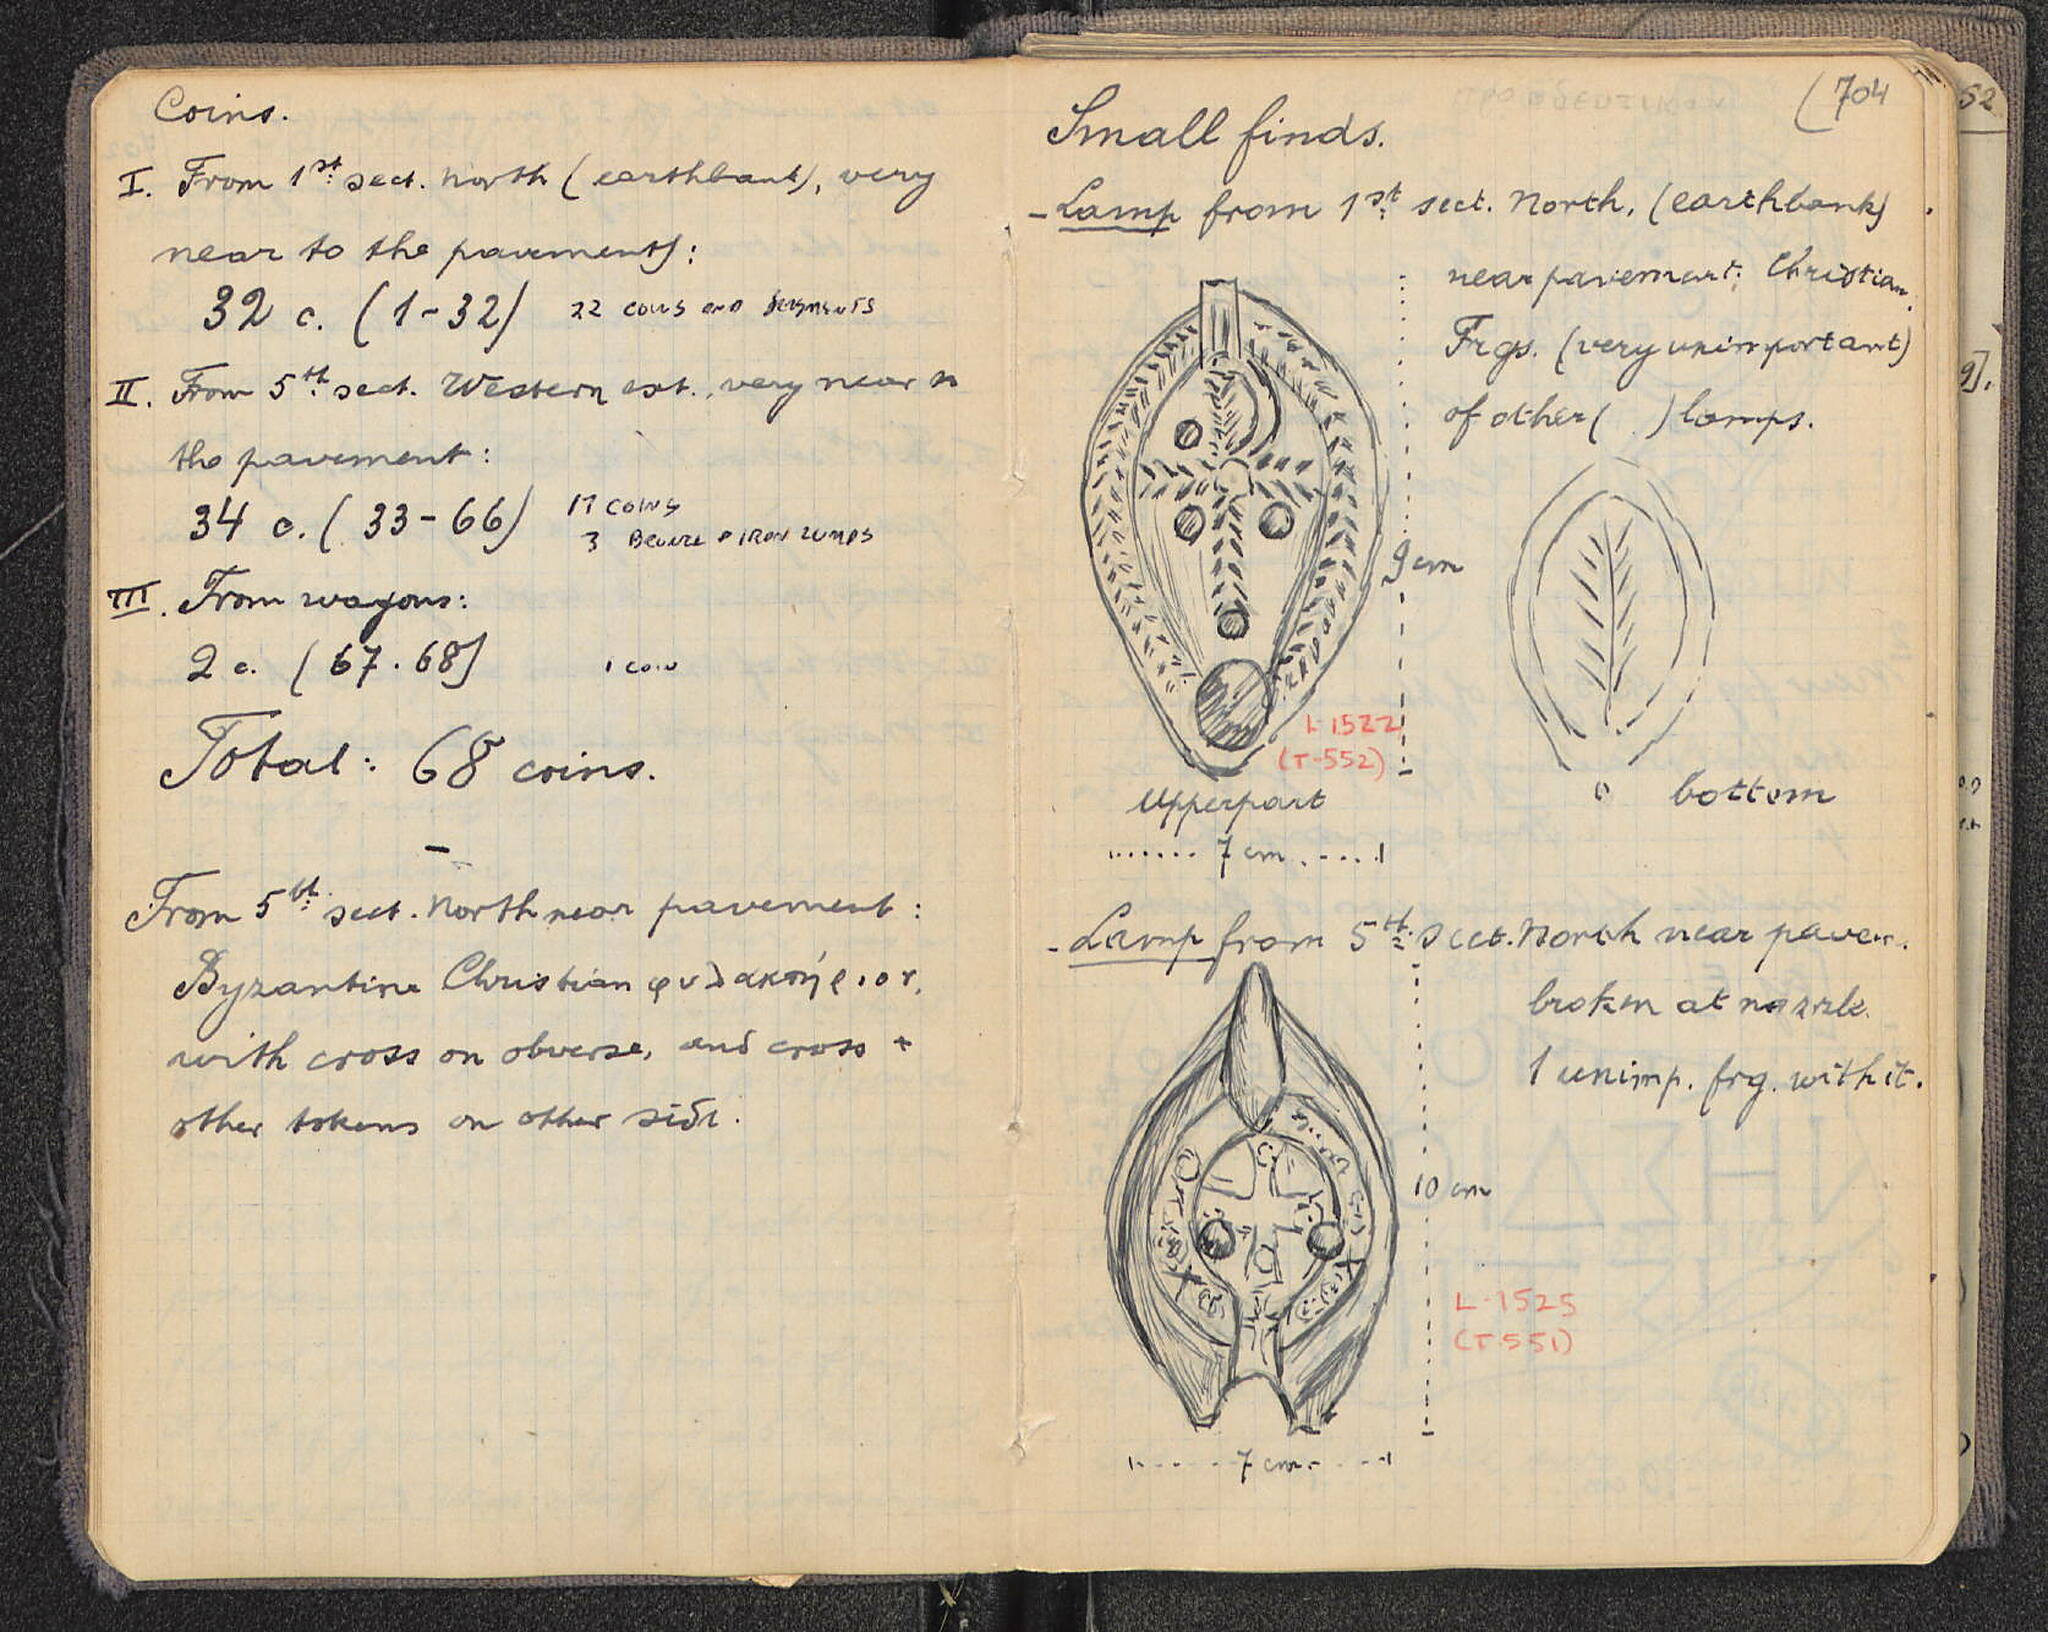 Coins.
I. From 1st sect. North (earthbank), very
near to the pavement):
32 c. (1-32) 22 coins and fragments
II. From 5th sect. Western ext., very near to
the pavement:
34 c. (33-66) 17 coins
3 bronze + iron lumps
III. From wagons:
2 c. (67.68) 1 coin
Total: 68 coins.
From 5th sect. North near pavement:
Byzantine Christian φυλακτήριον,
with cross on obverse, and cross +
other tokens on other side.
(704
Small finds.
- Lamp from 1st sect. North, (earthbank)
near pavement: Christian.
Frgs. (very unimportant)
of other ( ) lamps.
9 cm
L-1522
(T-552)
Upperpart
bottom
7 cm
- Lamp from 5th sect. North near pavem.
broken at nozzle.
1 unimp. frg. with it.
10 cm
L-1525
(T-551)
7 cm
52
9].